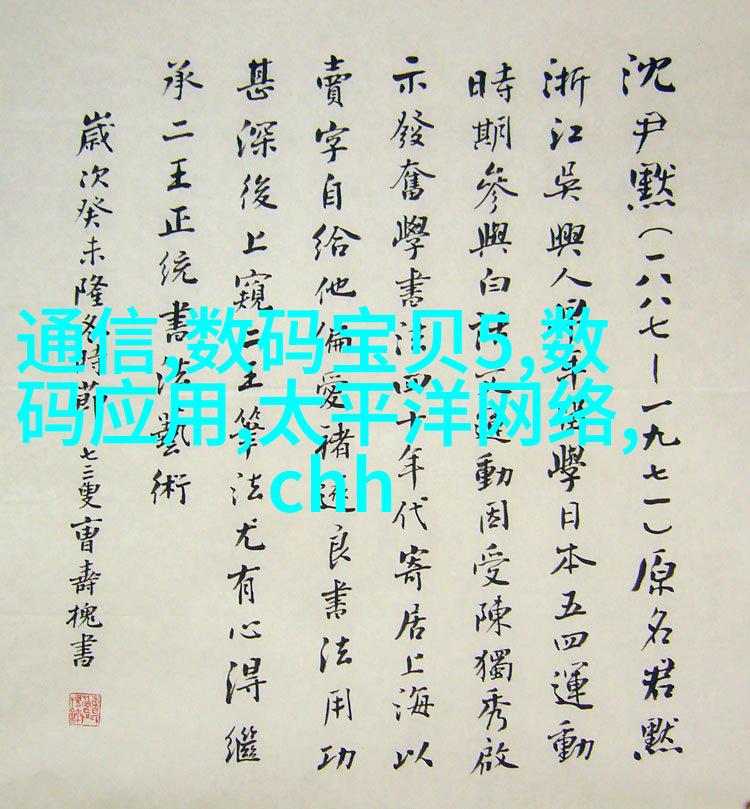 沈尹默(一八八七—一九七一)原名君默
浙江吳興人早年留學日本五四運動
時期參與白話文運動因受陳獨秀啟
示發奮學書法四十年代寄居上海以
賣字自給他偏愛褚遂良書法用功
甚深後上窺二王筆法尤有心得繼
承二王正統書法藝術
歲次癸未隆冬時節七三叟曹壽槐書
通信,数码宝贝5,数
码应用,太平洋网络,
chh